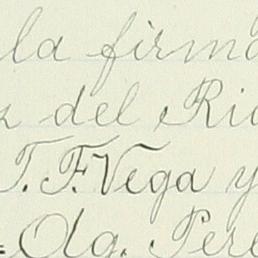 la firma
z del Rio
T. F. Vega y
Og. Pere